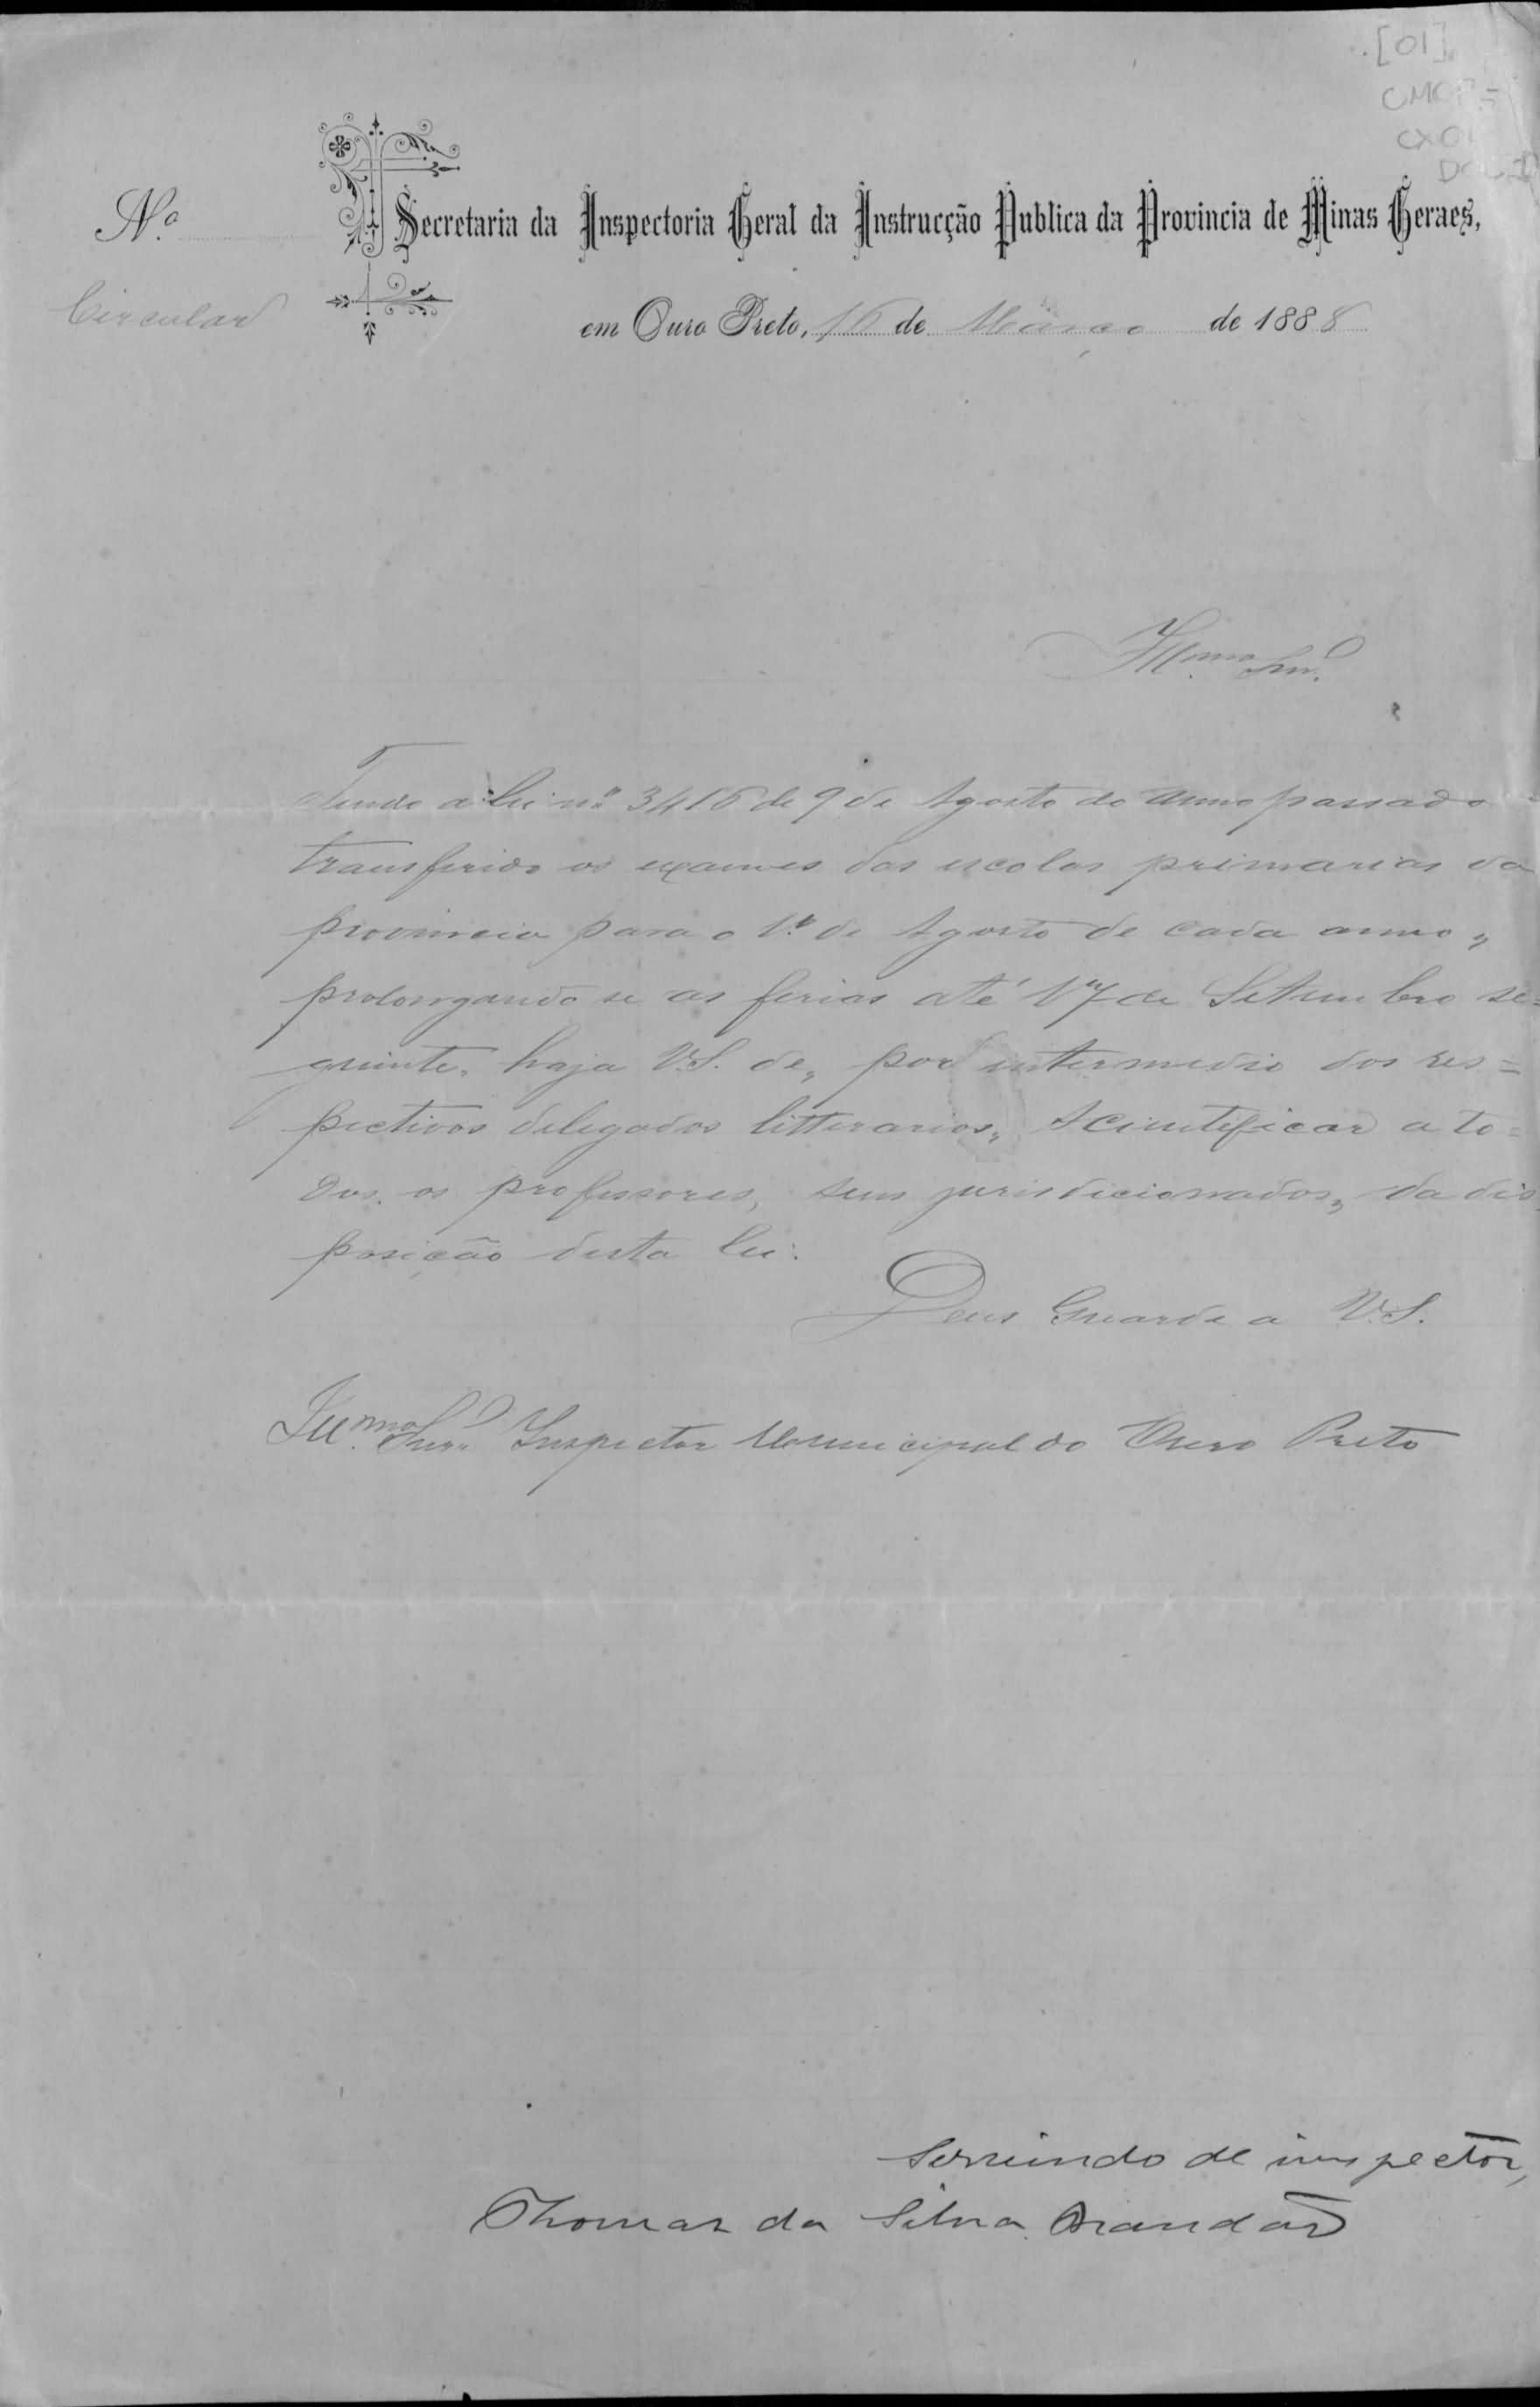 [01]
CMOP
CX01
N.o
Secretaria da Inspectoria Geral da Instrucção Publica da Provincia de Minas Geraes,
Circular
em Ouro Preto, 16 de Março de 1888
Illmo. Snr.
Tendo a lei nº 3416 de 9 de Agosto do anno passado
transferido os exames das escolas primarias da
provincia para o 1º de Agosto de cada anno,
prolongando se as ferias até 17 de Setembro se=
guinte, haja V.S. de, por intermedio dos res=
pectivos delegados litterarios, scientificar a to=
dos os professores, seus jurisdicionados, da dis
posição desta lei.
Deus Guarde a V.S.
Illmo. Snr. Inspector Municipal do Ouro Preto
Servindo de inspector,
Thomaz da Silva Brandão